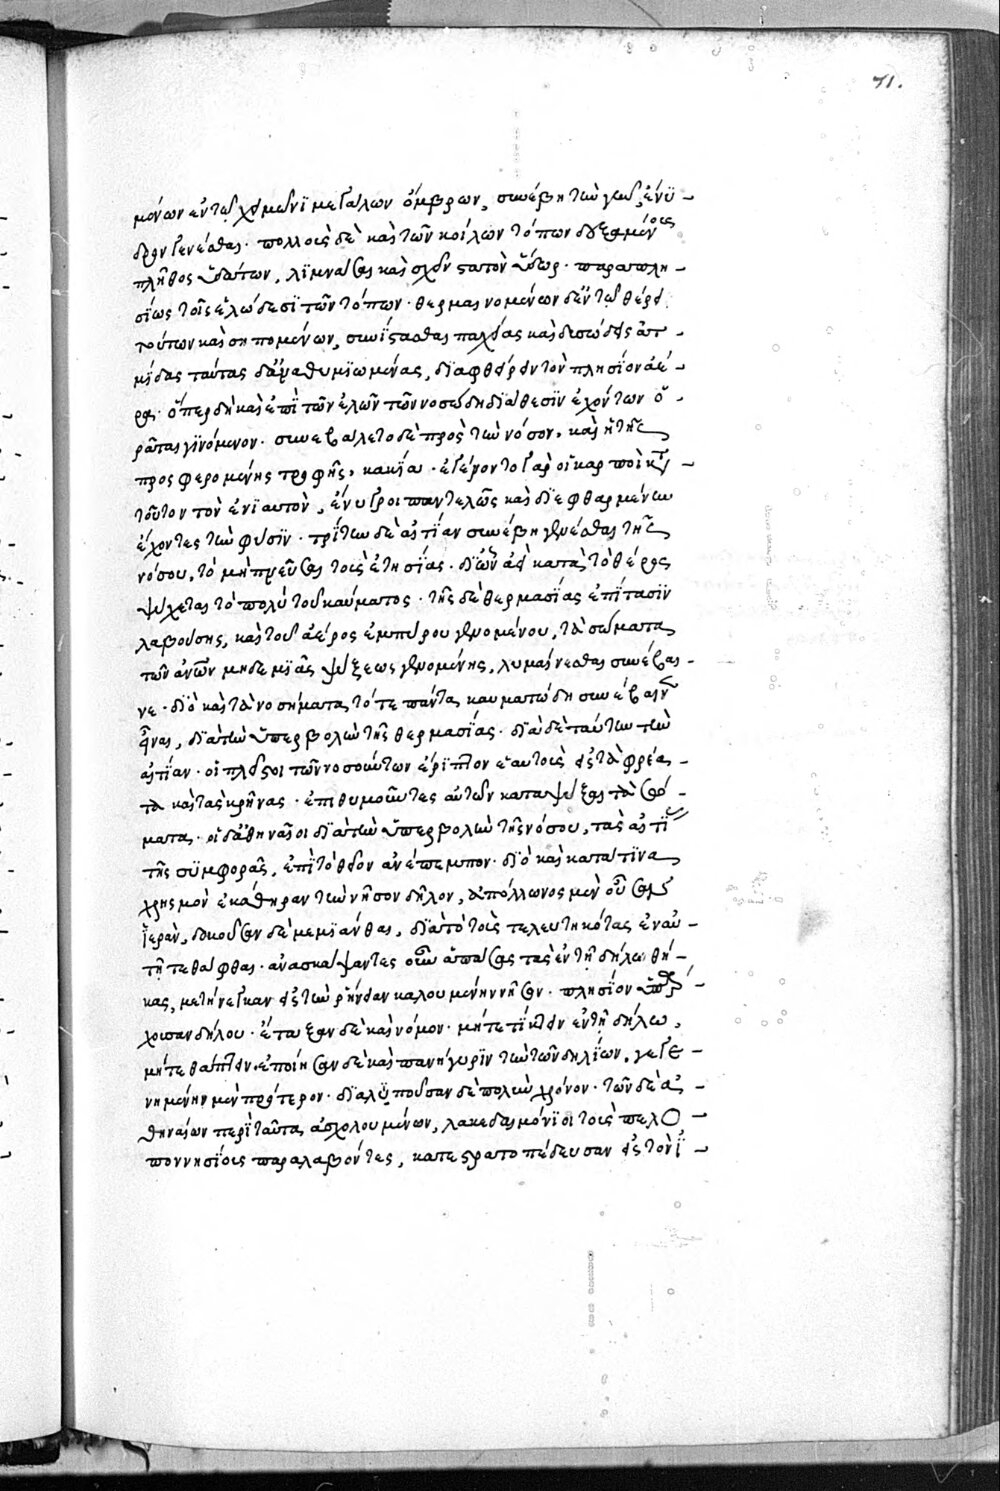 71.
μένων ἐν τῷ χειμῶνι μεγάλων ὄμβρων, συνέβη τὴν γῆν ἔνϋ-
δρον γενέσθαι· πολλοὺς δὲ καὶ τῶν κοίλων τόπων δεξαμένοις
πλῆθος ὕδατων, λϊμνάσαι καὶ σχεῖν στατὸν ὕδωρ· παραπλη-
σΐως τοῖς ἑλώδεσϊ τῶν τόπων· θερμαινομένων δ' ἐν τῷ θέρει
τούτων καὶ σηπομένων, συνΐστασθαι παχείας καὶ δυσώδεις ἀτ-
μΐδας ταύτας δ' ἀναθυμϊωμένας, δϊαφθείρειν τὸν πλησΐον ἀέ-
ρα· ὅπερ δὴ καὶ ἐπὶ τῶν ἑλῶν τῶν νοσώδη δϊάθεσϊν ἐχόντων ὁ-
ρᾶται γϊνόμενον· συνεβάλετο δὲ πρὸς τὴν νόσον, καὶ ἡ τῆς
προσφερομένης τροφῆς, κακΐα· ἐγένοντο γὰρ οἱ καρποὶ κατὰ
τοῦτον τὸν ἐνϊαυτὸν, ἔνυγροι παντελῶς καὶ δϊεφθαρμένην
ἔχοντες τὴν φύσϊν· τρΐτην δὲ αἰτΐαν συνέβη γενέσθαι τῆς
νόσου, τὸ μὴ πνεῦσαι τοὺς ἐτησΐας· δϊ' ὧν ἀεὶ κατὰ τὸ θέρος
ψύχεται τὸ πολὺ τοῦ καύματος· τῆς δὲ θερμασΐας ἐπΐτασϊν
λαβούσης, καὶ τοῦ ἀέρος ἐμπύρου γενομένου, τὰ σώματα
τῶν ἀνῶν μηδεμϊᾶς ψύξεως γενομένης, λυμαίνεσθαι συνέβαι-
νε· δϊὸ καὶ τὰ νοσήματα τότε πάντα καυματώδη συνέβαινεν
εἶναι, δϊὰ τὴν ὑπερβολὴν τῆς θερμασΐας· δϊὰ δὲ ταύτην τὴν
αἰτΐαν· οἱ πλεῖστοι τῶν νοσούντων ἐρΐπτουν ἑαυτοὺς εἰς τὰ φρέα-
τα καὶ τὰς κρήνας· ἐπιθυμοῦντες αὐτῶν καταψύξαι τὰ σώ-
ματα· οἱ δ' ἀθηναῖοι δϊὰ τὴν ὑπερβολὴν τῆς νόσου, τὰς αἰτΐας
τῆς συμφορᾶς, ἐπὶ τὸ θεῖον ἀνέπεμπον· δϊὸ καὶ κατά τϊνα
χρησμὸν ἐκάθηραν τὴν νῆσον δῆλον, ἀπόλλωνος μὲν οὖσαν
ἱερὰν, δοκοῦσαν δὲ μεμϊάνθαι, δϊὰ τὸ τοὺς τελευτηκότας ἐν αὐ-
τῇ τεθάφθαι· ἀνασκάψαντες οὖν ἁπάσας τὰς ἐν τῇ δήλω θή-
κας, μετήνεγκαν εἰς τὴν ῥήνειαν καλουμένην νῆσον· πλησΐον ὑπάρ-
χουσαν δήλου· ἔταξαν δὲ καὶ νόμον· μήτε τΐκτειν ἐν τῇ δήλω,
μήτε θάπτειν· ἐποίησαν δὲ καὶ πανήγυρϊν τὴν τῶν δηλΐων, γεγε-
νημένην μὲν πρότερον· δϊαλϊποῦσαν δὲ πολὺν χρόνον· τῶν δὲ ἀ-
θηναίων περὶ ταῦτα ἀσχολουμένων, λακεδαιμόνϊοι τοὺς πελο-
ποννησΐους παραλαβόντες, κατεστρατοπέδευσαν εἰς τὸν ἰ-